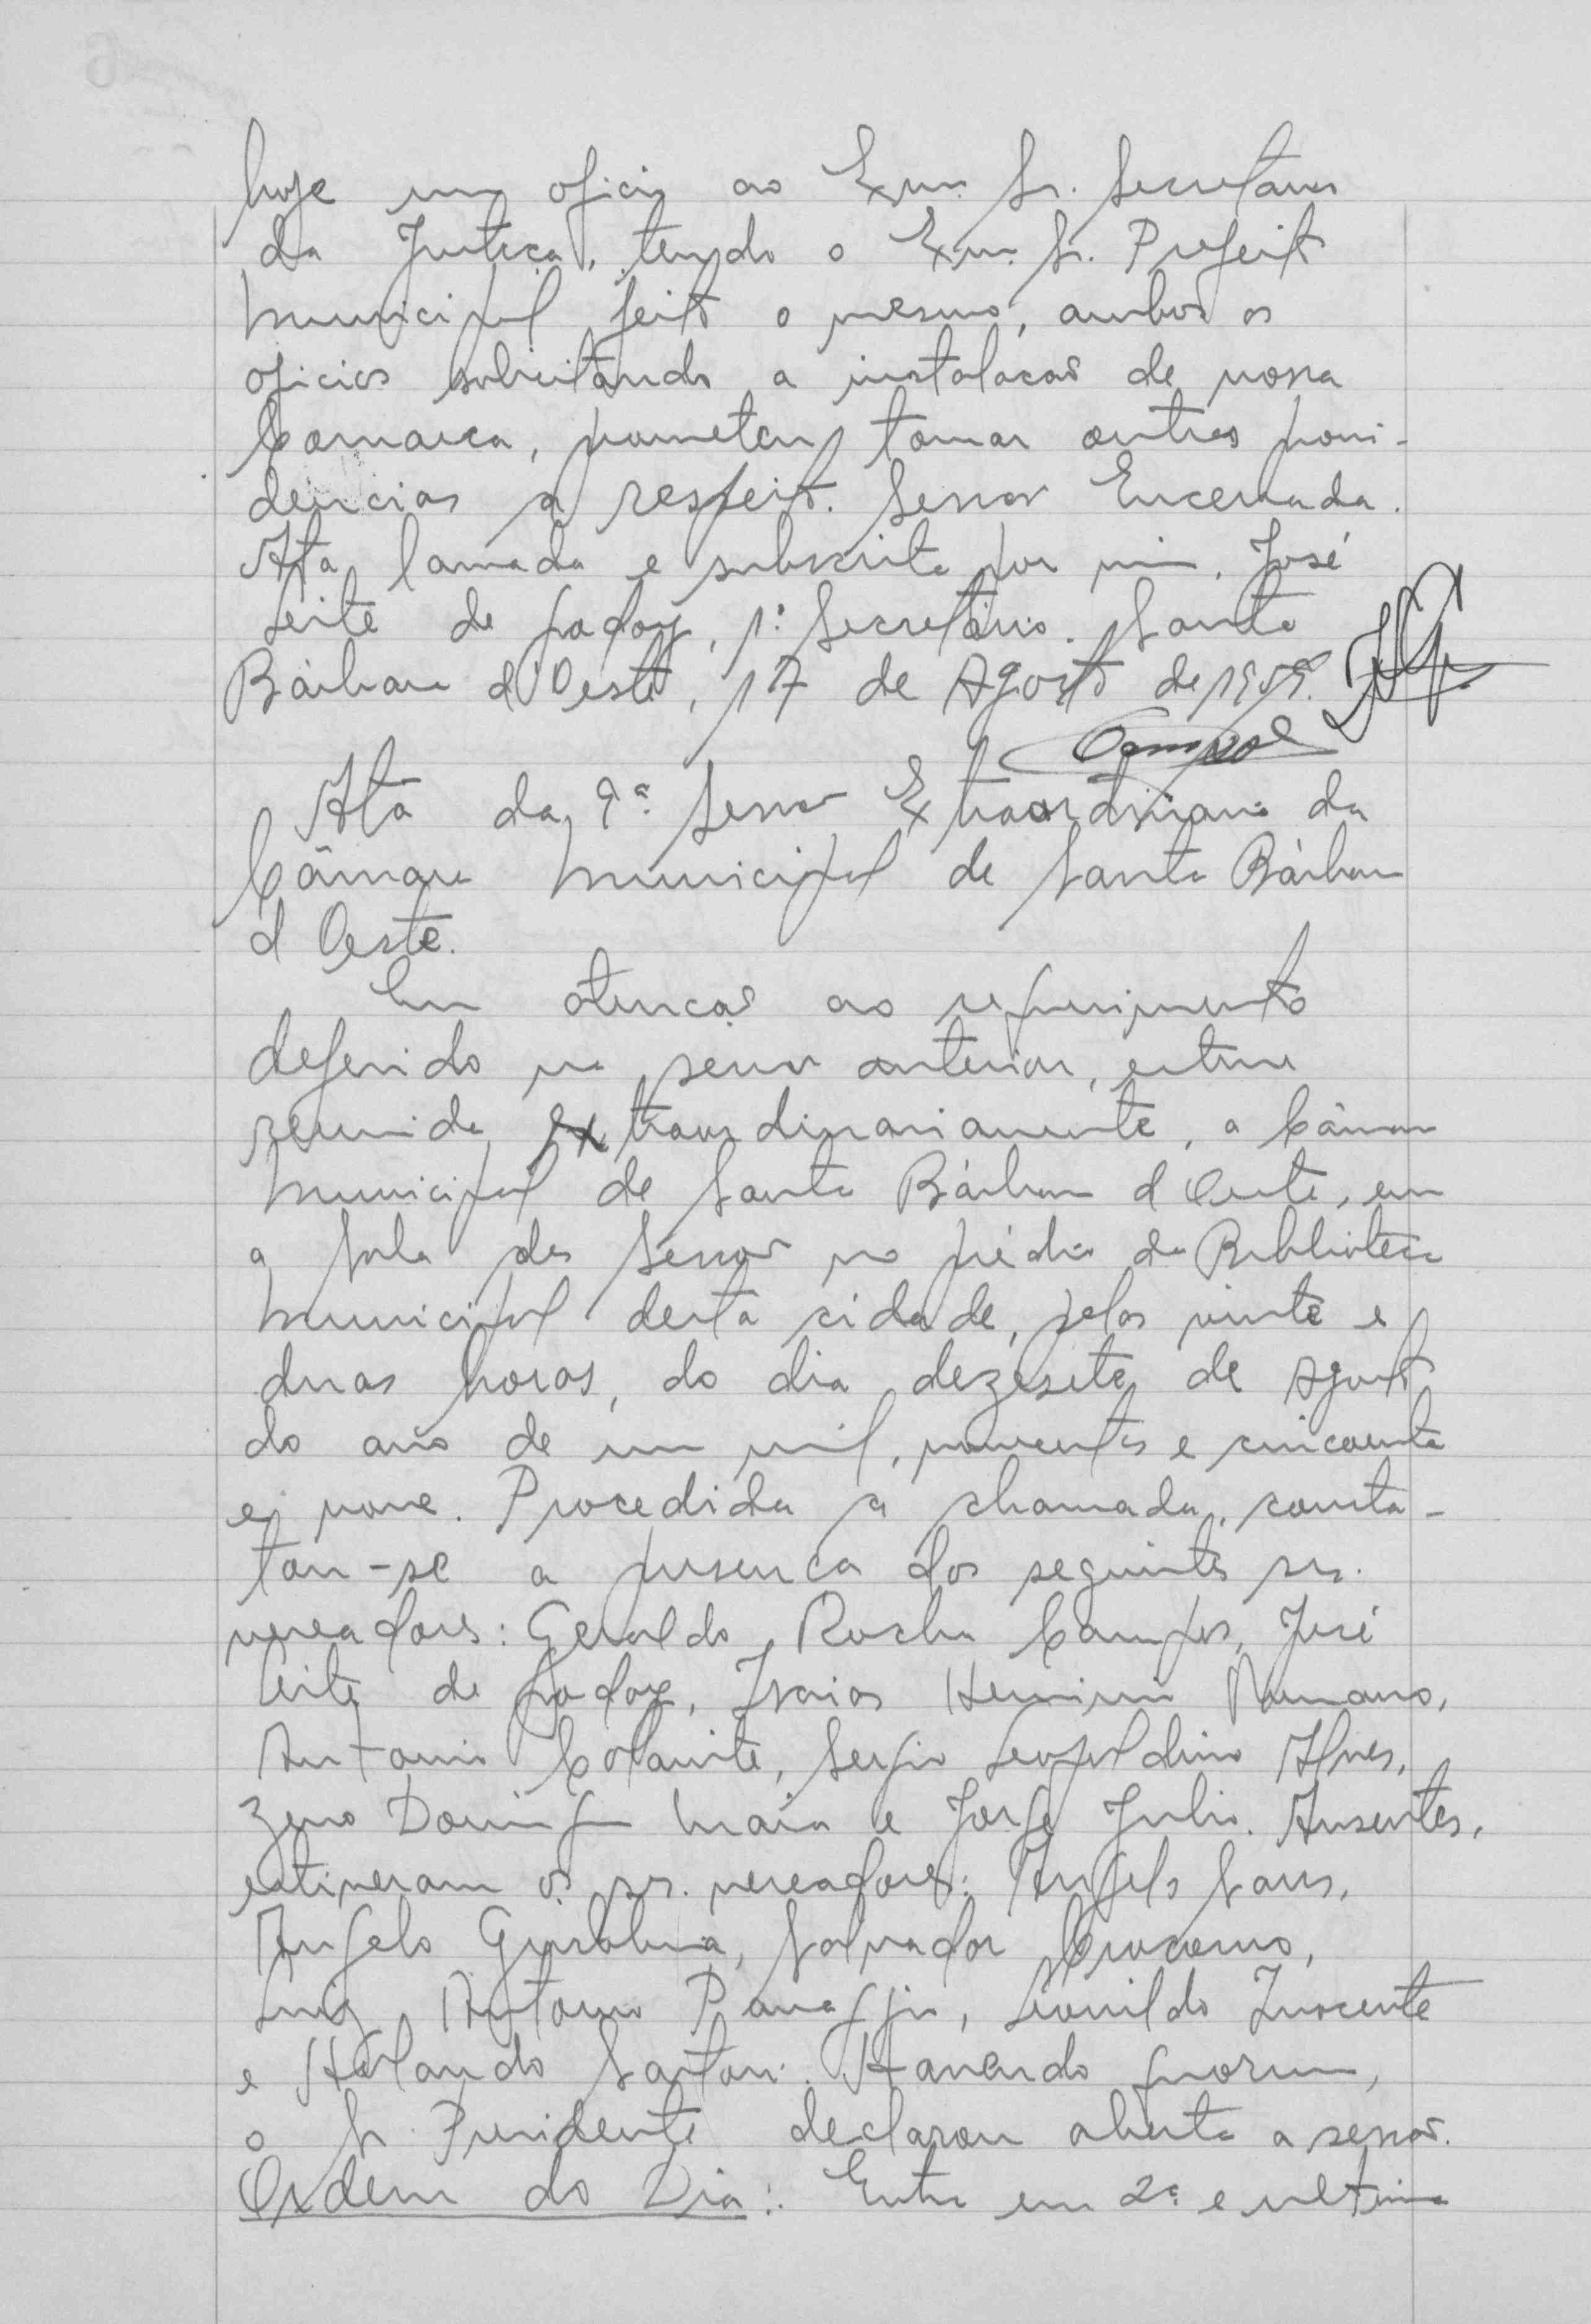 hoje um oficio ao Exmo. Sr. Secretario
da Justiça, tendo o Exmo. Sr. Prefeito
Municipal feito o mesmo, ambos os
oficios solicitando a instalacão de nossa
Comarca, prometeu tomar outras provi-
dencias a respeito. Sessão Encerrada.
Ata lavrada e subscrita por mim, José
Leite de Godoy, 1º Secretário. Santa
Bárbara d'Oeste, 17 de Agosto de 1959.
Campos
Ata da 9ª Sessão Extraordinaria da
Câmara Municipal de Santa Bárbara
d Oeste.
Em atencão ao requerimento
deferido na sessão anterior, esteve
reunida Extraordinariamente, a Câmara
Municipal de Santa Bárbara d Oeste, em
a sala das Sessões no prédio da Biblioteca
Municipal desta cidade, pelas vinte e
duas horas, do dia dezesete de Agosto
do ano de um mil, novecentos e cincoenta
e nove. Procedida a chamada, consta-
tou-se a presenca dos seguintes srs.
vereadores: Geraldo Rocha Campos, José
Leite de Godoy, Isaias Herminio Romano,
Antonio Colanite, Sergio Leopoldino Alves,
Zeno Domingos Maia e Jorge Julio. Ausentes,
estiveram os srs. vereadores: Angelo Sans,
Angelo Giubbina, Salvador
Luiz Antonio Panaggio, Leonildo Inocente
e Hilando Sartori. Havendo quorum,
o Sr. Presidente declarou aberta a sessão.
Ordem do Dia: Entra em 2ª e ultima